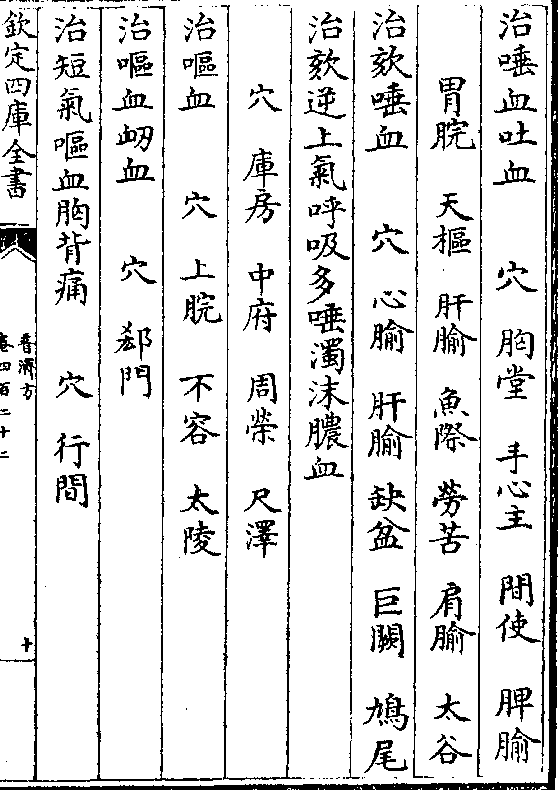 治唾血吐血 穴 胸堂 手心主 間使 脾腧
胃脘 天樞 肝腧 魚際 勞苦 肩腧 太谷
治欬唾血 穴 心腧 肝腧 缺盆 巨闕 鳩尾
治欬逆上氣呼吸多唾濁沫膿血
穴 庫房 中府 周榮 尺澤
治嘔血 穴 上脘 不容 太陵
治嘔血衂血 穴 郄門
治短氣嘔血胸背痛 穴 行間
欽定四庫全書
普濟方
卷四百二十二
十